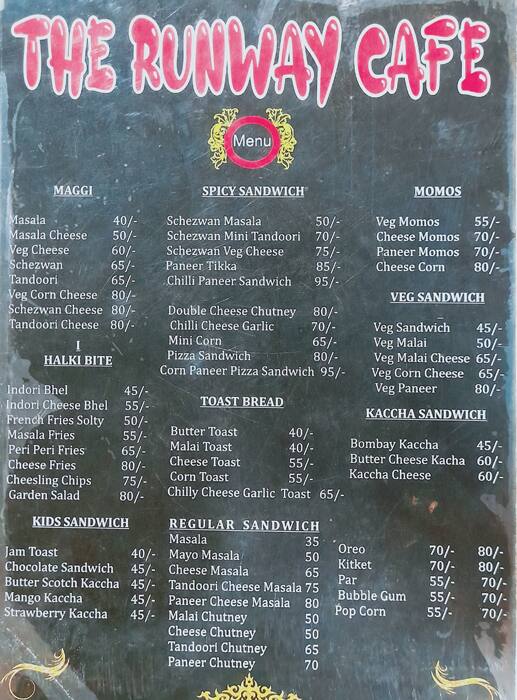 THE RUNWAY CAFE
Menu
MAGGI
Masala 40/-
Masala Cheese 50/-
Veg Cheese 60/-
Schezwan 65/-
Tandoori 65/-
Veg Corn Cheese 80/-
Schezwan Cheese 80/-
Tandoori Cheese 80/-
I
HALKI BITE
Indori Bhel 45/-
Indori Cheese Bhel 55/-
French Fries Solty 50/-
Masala Fries 55/-
Peri Peri Fries 65/-
Cheese Fries 80/-
Cheesling Chips 75/-
Garden Salad 80/-
KIDS SANDWICH
Jam Toast 40/-
Chocolate Sandwich 45/-
Butter Scotch Kaccha 45/-
Mango Kaccha 45/-
Strawberry Kaccha 45/-
SPICY SANDWICH
Schezwan Masala 50/-
Schezwan Mini Tandoori 70/-
Schezwan Veg Cheese 75/-
Paneer Tikka 85/-
Chilli Paneer Sandwich 95/-
Double Cheese Chutney 80/-
Chilli Cheese Garlic 70/-
Mini Corn 65/-
Pizza Sandwich 80/-
Corn Paneer Pizza Sandwich 95/-
TOAST BREAD
Butter Toast 40/-
Malai Toast 40/-
Cheese Toast 55/-
Corn Toast 55/-
Chilly Cheese Garlic Toast 65/-
REGULAR SANDWICH
Masala 35
Mayo Masala 50
Cheese Masala 65
Tandoori Cheese Masala 75
Paneer Cheese Masala 80
Malai Chutney 50
Cheese Chutney 50
Tandoori Chutney 65
Paneer Chutney 70
MOMOS
Veg Momos 55/-
Cheese Momos 70/-
Paneer Momos 70/-
Cheese Corn 80/-
VEG SANDWICH
Veg Sandwich 45/-
Veg Malai 50/-
Veg Malai Cheese 65/-
Veg Corn Cheese 65/-
Veg Paneer 80/-
KACCHA SANDWICH
Bombay Kaccha 45/-
Butter Cheese Kacha 60/-
Kaccha Cheese 60/-
Oreo 70/- 80/-
Kitket 70/- 80/-
Par 55/- 70/-
Bubble Gum 55/- 70/-
Pop Corn 55/- 70/-